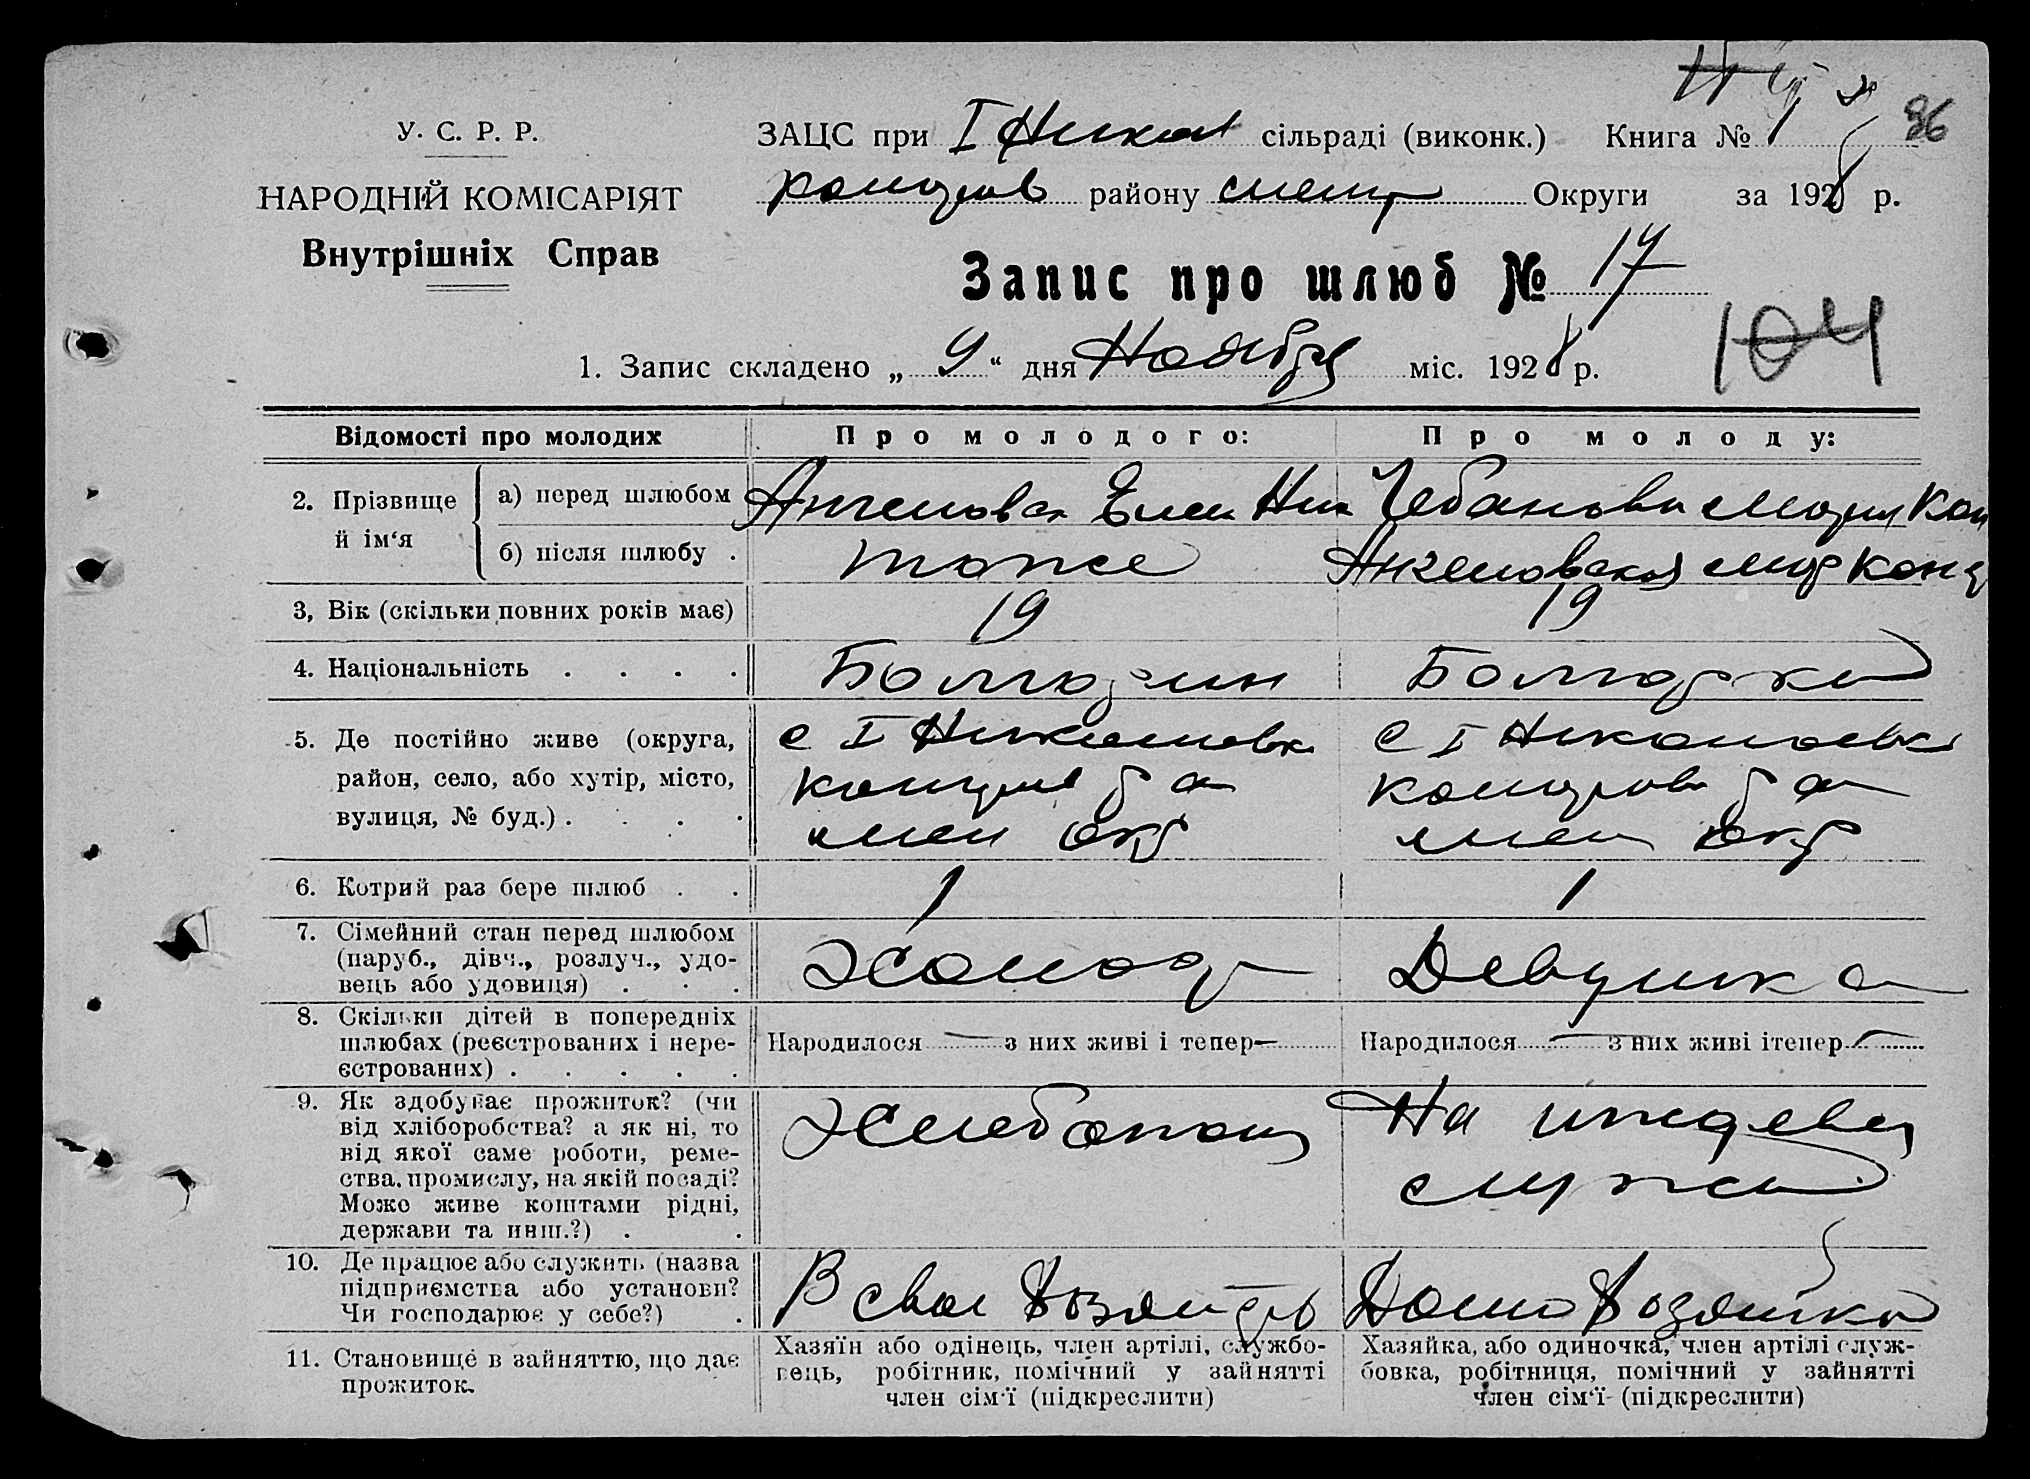 У. С. Р. Р.
НАРОДНІЙ КОМІСАРІЯТ
Внутрішніх Справ
ЗАЦС при І Никол сільраді (виконк.) Книга № 1 96
району Округи за 1928 р.
Запис про шлюб № 17
104
1. Запис складено „ 9 “ дня Ноября міс. 1928 р.
Відомості про молодих
Про молодого:
Про молоду:
2. Прізвище й ім‘я
а) перед шлюбом
Чебанова Мария Кон
б) після шлюбу .
тоже
Ангеловская Мар Конд
3, Вік (скільки повних років має)
19
19
4. Національність . . . .
Болгарин
Болгарка
5. Де постійно живе (округа,
район, село, або хутір, місто,
вулиця, № буд.) . . . .
с І Николаевка
окр
с І Николаевка
окр
6. Котрий раз бере шлюб . .
1
1
7. Сімейний стан перед шлюбом
(паруб., дівч., розлуч., удо-
вець або удовиця) . . .
Холост
Девушка
8. Скільки дітей в попередніх
шлюбах (реєстрованих і нере-
єстрованих) . . . . .
Народилося — з них живі і тепер —
Народилося — з них живі ітепер —
9. Як здобуває прожиток? (чи
від хліборобства? а як ні, то
від якої саме роботи, реме-
ства, промислу, на якій посаді?
Може живе коштами рідні,
держави та инш.?) . .
Хлебопаш
На иждевен
мужа
10. Де працює або служить (назва
підприємства або установи?
Чи господарює у себе?) .
В свои хозяйств
Дома хозяйка
11. Становище в зайняттю, що дає
прожиток.
Хазяїн або одінець, член артілі, службо-
вець, робітник, помічний у зайнятті
член сім‘ї (підкреслити)
Хазяйка, або одиночка, член артілі служ-
бовка, робітниця, помічний у зайнятті
член сім‘ї (підкреслити)